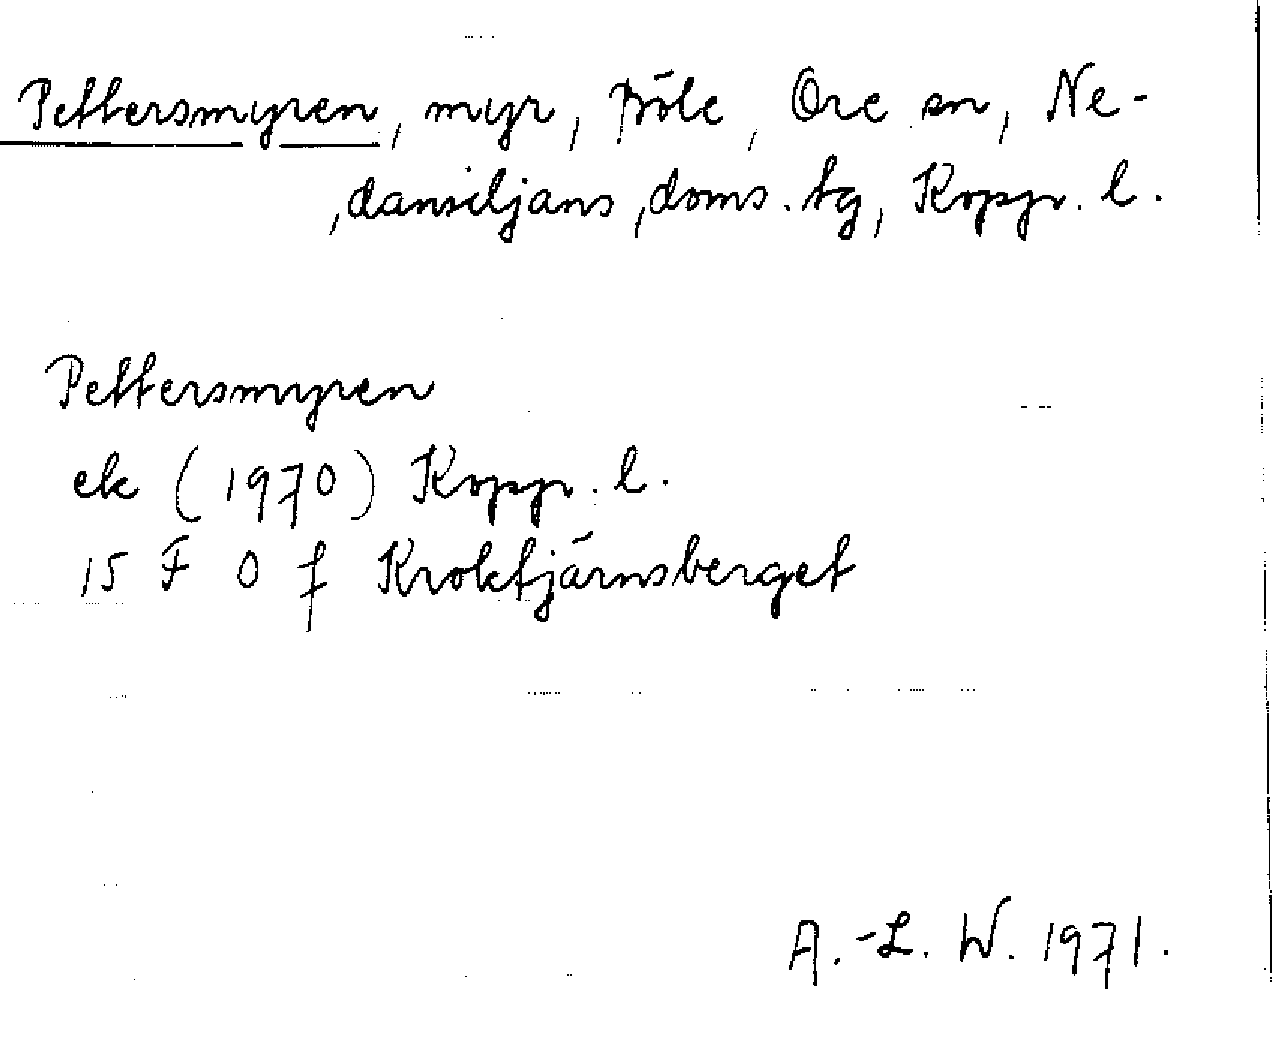 Pettersmyren, myr, Böle, Ore sn, Ne-
dansiljans doms. tg, Koppr. l.
Pettersmyren
ek (1970) Koppr. l.
15 F 0 f Kroktjärnsberget
A.-L. W. 1971.